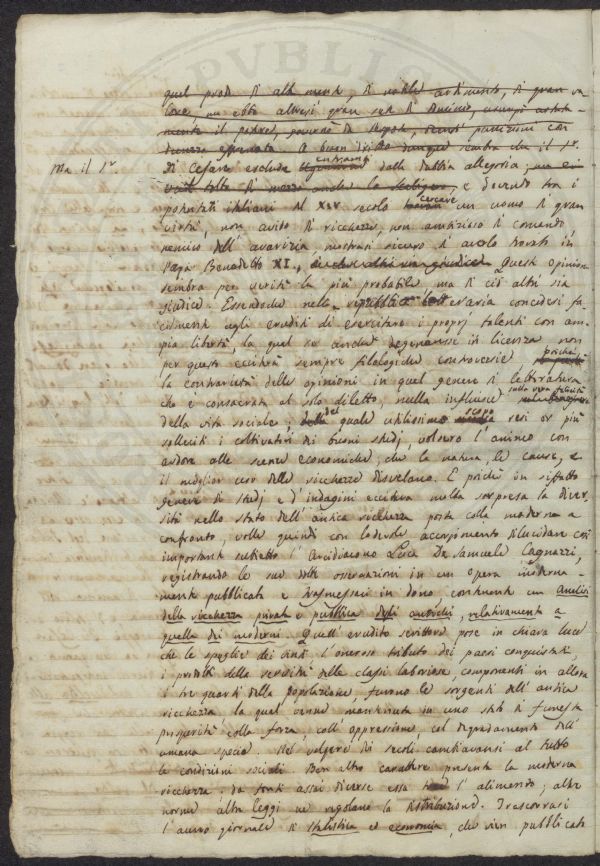 quel prode d'alta mente, di nobile ardimento, di gran va
lore, ma ebbe altresì gran sete di dominio, usurpò astuta-
mente il potere,
A buon diritto dunque sembra che il Sr.
Ma il Sr.
Di Cesare esclude entrambi dalla dubbia allegoria;
e dovendo tra i
potentati italiani del XIV secolo cercare un uomo di gran
virtù, non avido di ricchezze, non ambizioso di comando
nemico dell'avarizia, mostrasi sicuro d'averlo trovato in
Papa Benedetto XI. Questa opinione
sembra per verità la più probabile ma di ciò altri sia
giudice. Essendochè nella repubblica letteraria concedesi fa
cilmente agli eruditi di esercitare i proprj talenti con am-
pia libertà, la qual se anche degenerasse in licenza non
per questo ecciterà sempre filologiche controversie poichè
la contrarietà delle opinioni in quel genere di letteratura
che è consacrata al solo diletto, nulla influisce sulla vera felicità
della vita sociale; del quale utilissimo scopo resi or più
solleciti i coltivatori di buoni studj, volsero l'animo con
ardore alle scienze economiche, che la natura, le cause, e
il miglior uso delle ricchezze disvelano. E poichè in siffatto
genere di studj e d'indagini eccitava molta sorpresa la diver
sità nello stato dell'antica ricchezza posta colla moderna a
confronto, volle quindi con lodevole accorgimento dilucidare così
importante subietto l'Arcidiacono Luca De Samuele Cagnazzi,
registrando le sue dotte osservazioni in un opera moderna-
mente pubblicata e trasmessaci in dono, contenente un Analisi
della ricchezza privata e pubblica degli antichi, relativamente a
quella dei moderni. Quell'erudito scrittore pose in chiara luce
che le spoglie dei vinti l'oneroso tributo dei paesi conquistati,
i prodotti della servitù delle classi laboriose, componenti in allora
i tre quarti della popolazione, furono le sorgenti dell'antica
ricchezza la qual venne mantenuta in uno stato di funesta
prosperità colla forza, coll'oppressione, col degradamento dell'
umana specie. Nel volgere di secoli cambiavansi al tutto
le condizioni sociali. Ben altro carattere presenta la moderna
ricchezza: da fonti assai diverse essa l'alimento, altre
norme altre leggi ne regolano la distribuzione. Trascorrasi
l'aureo giornale di statistica ed economia, che vien pubblicato